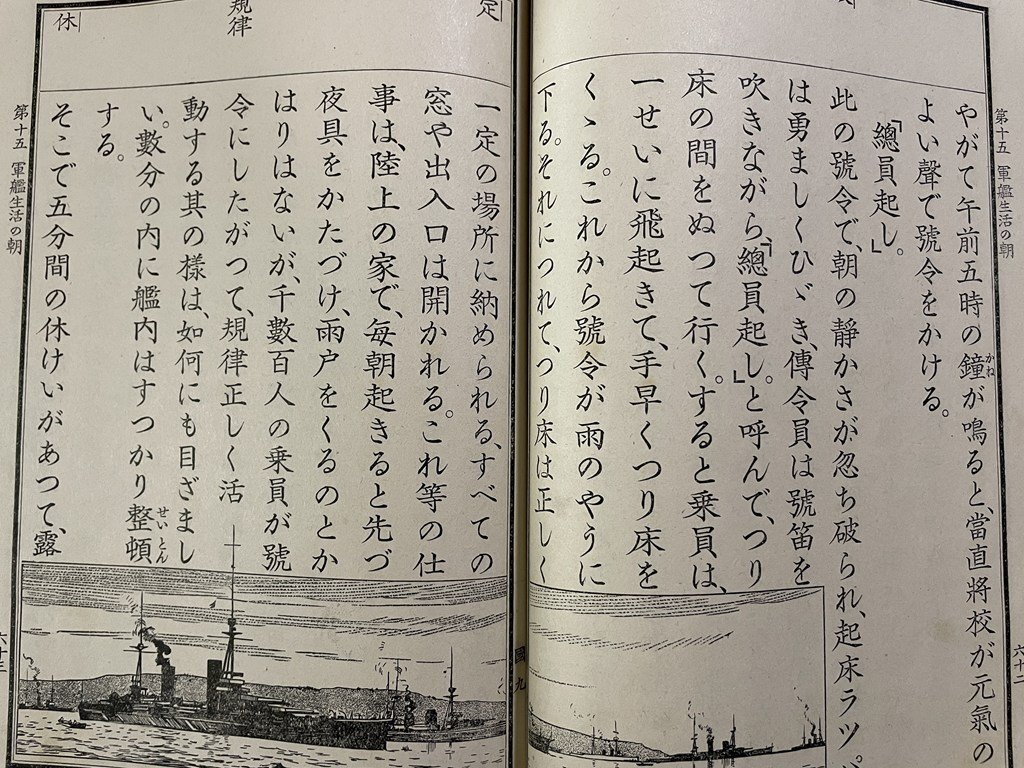 第十五 軍艦生活の朝
六十二
やがて午前五時の鐘が鳴ると、當直將校が元氣の
かね
よい聲で號令をかける。
「總員起し。」
此の號令で、朝の靜かさが忽ち破られ、起床ラッパ
は勇ましくひゞき、傳令員は號笛を
吹きながら、「總員起し。」と呼んで、つり
床の間をぬつて行く。すると乗員は、
一せいに飛起きて、手早くつり床を
くゝる。これから號令が雨のやうに
下る。それにつれて、つり床は正しく
國九
定
一定の場所に納められる、すべての
窓や出入口は開かれる。これ等の仕
事は、陸上の家で、毎朝起きると先づ
夜具をかたづけ、雨戸をくるのとか
はりはないが、千數百人の乗員が號
規律
令にしたがつて、規律正しく活
動する其の樣は、如何にも目ざまし
い。數分の内に艦内はすつかり整頓
せいとん
する。
休
そこで五分間の休けいがあつて、露
第十五 軍艦生活の朝